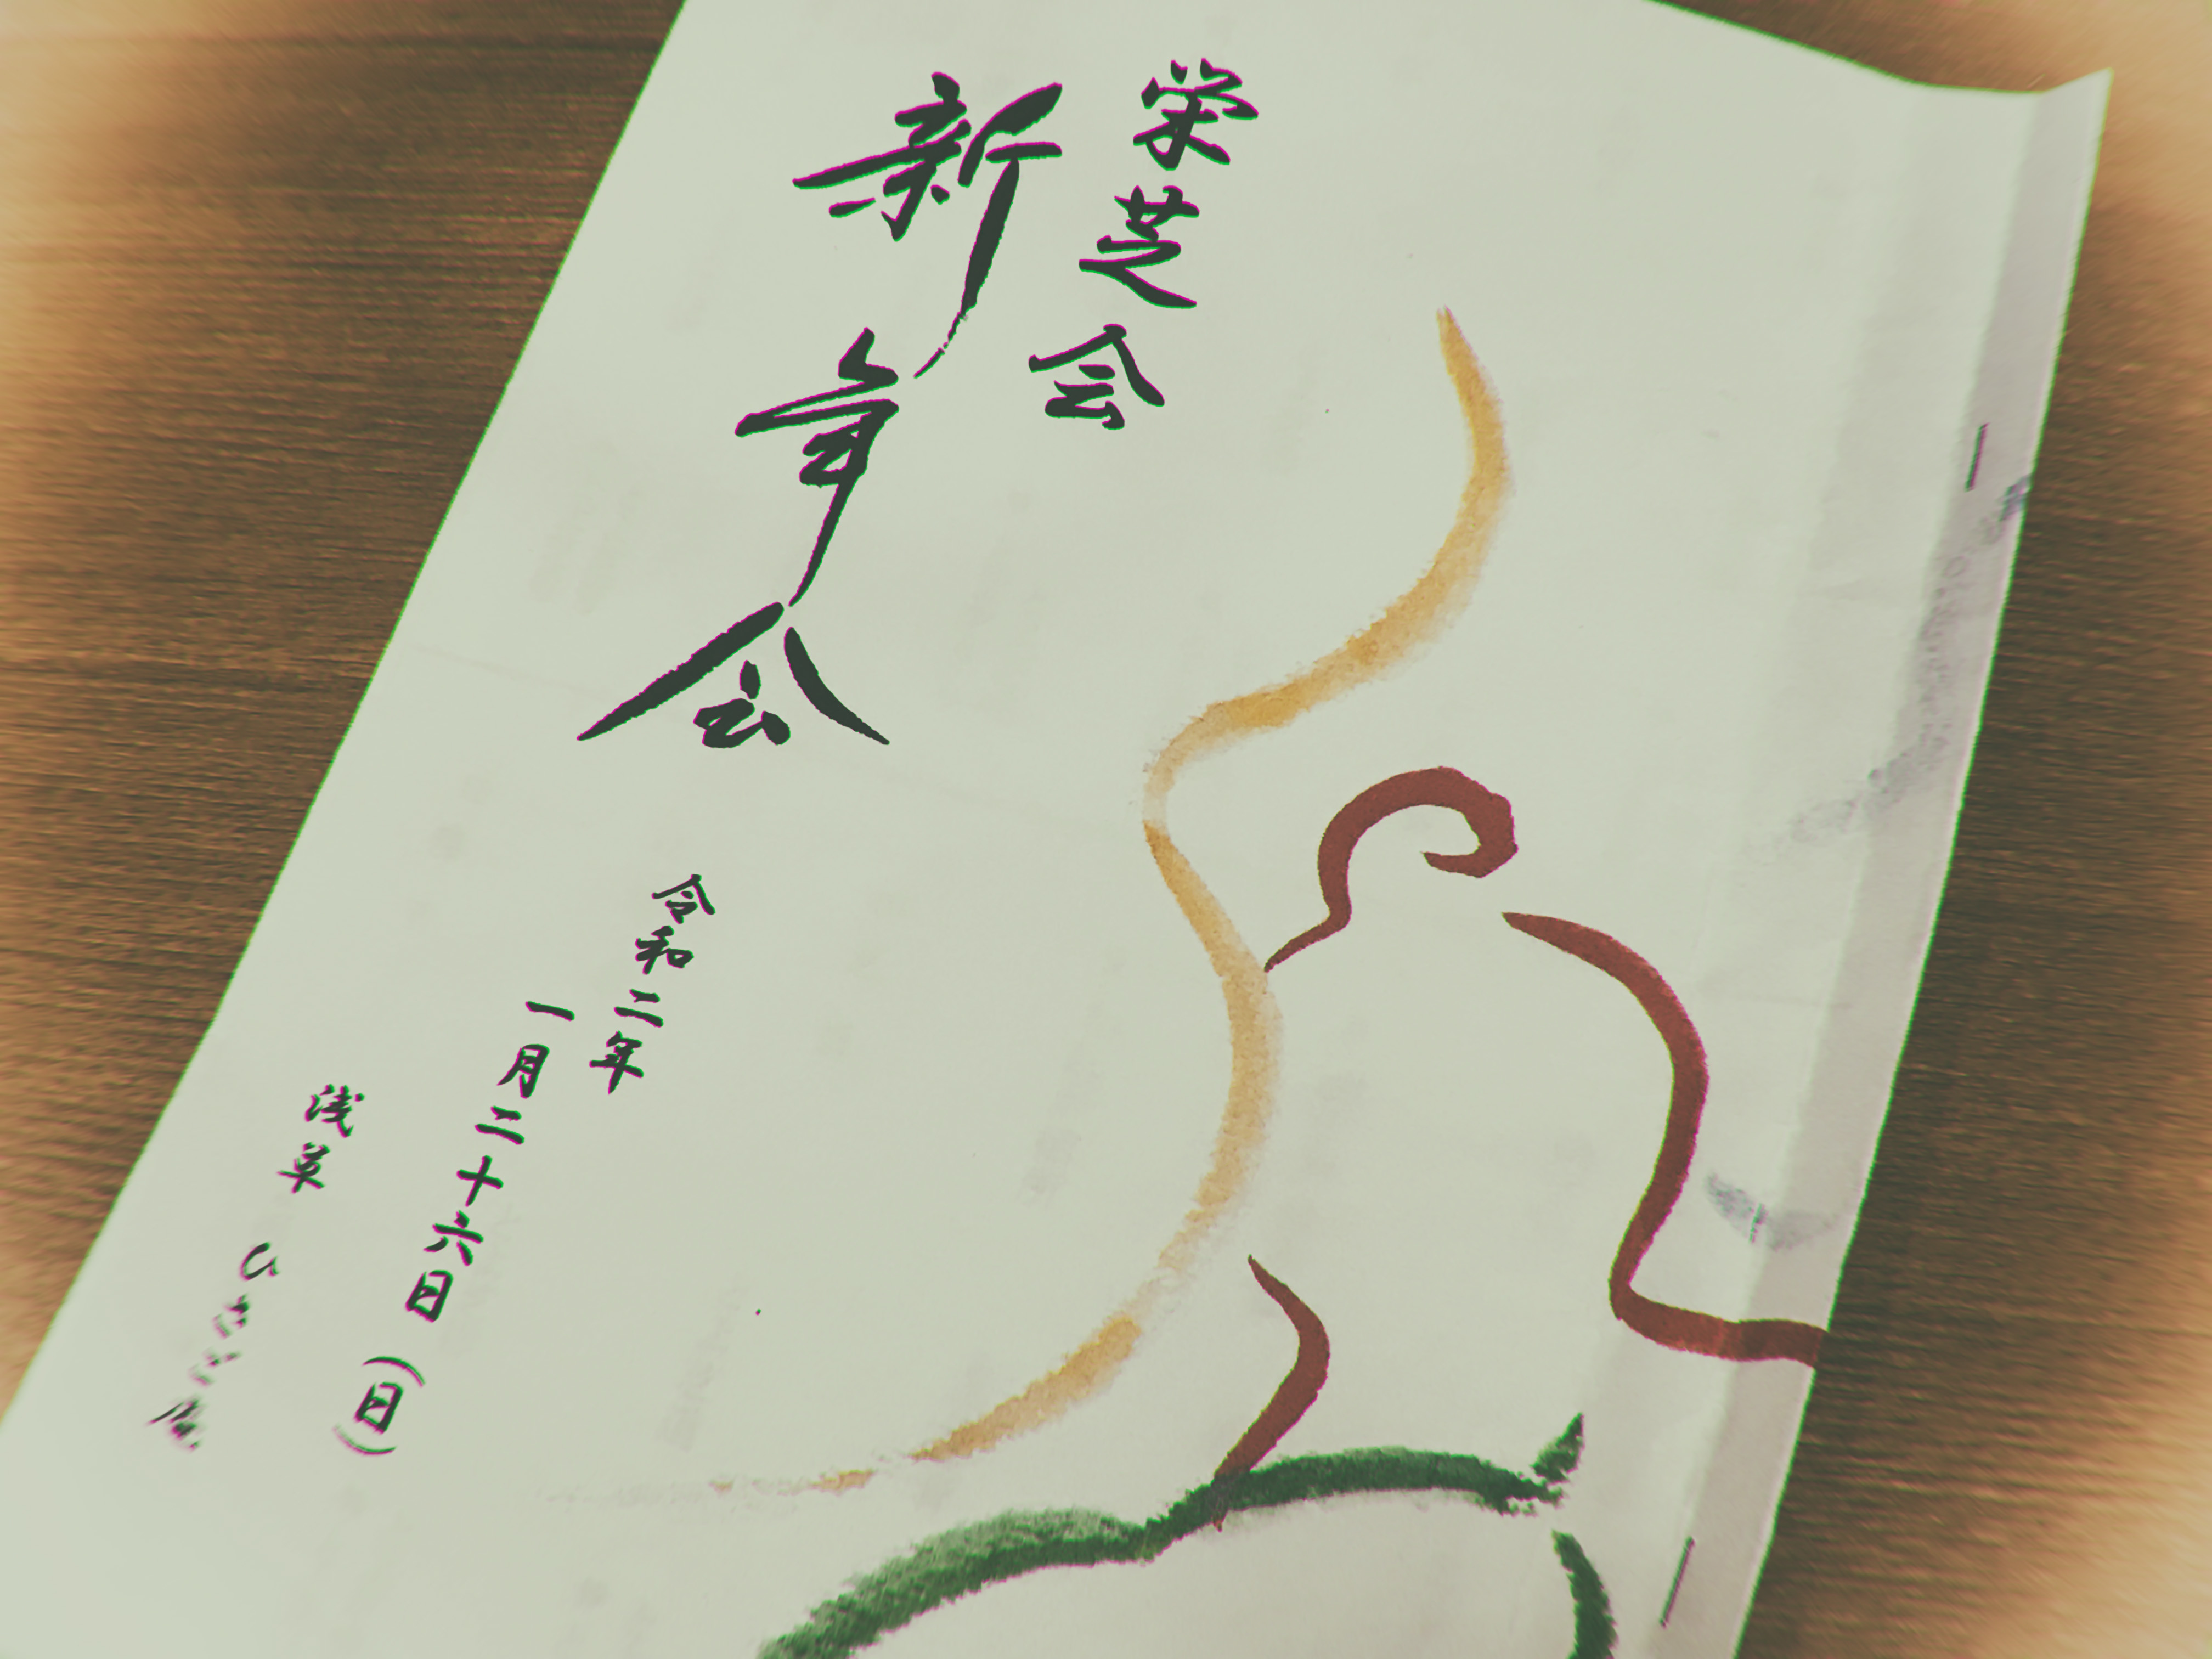 栄芝会
新年会
令和二年
一月二十六日(日)
浅草 ひさご